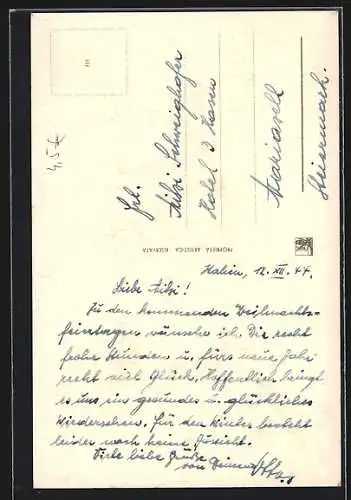 Frl.
Mitzi Schweighofer
Hotel 3 Hasen
Mariazell
Steiermark.
PROPRIETA ARTISTICA RISERVATA
4,5 €
12. XII. 44.
Liebe Mitzi!
Zu den kommenden Weihnachts-
feiertagen wünsche ich Dir recht
frohe Stunden u. fürs neue Jahr
recht viel Glück. Hoffentlich bringt
es uns ein gesundes u. glückliches
Wiedersehen. Für den Winter besteht
leider noch keine Aussicht.
Viele liebe Grüße
von Deinem Otto.